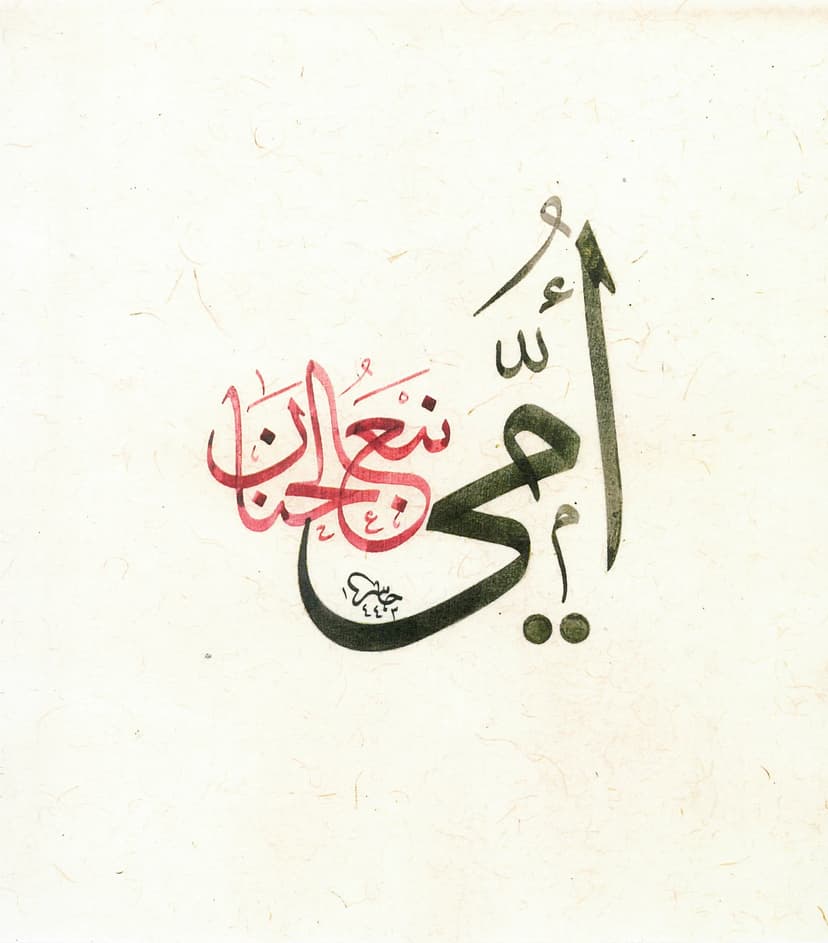 أُمِّي
نَبْعُ الحنان
١٤٤٣